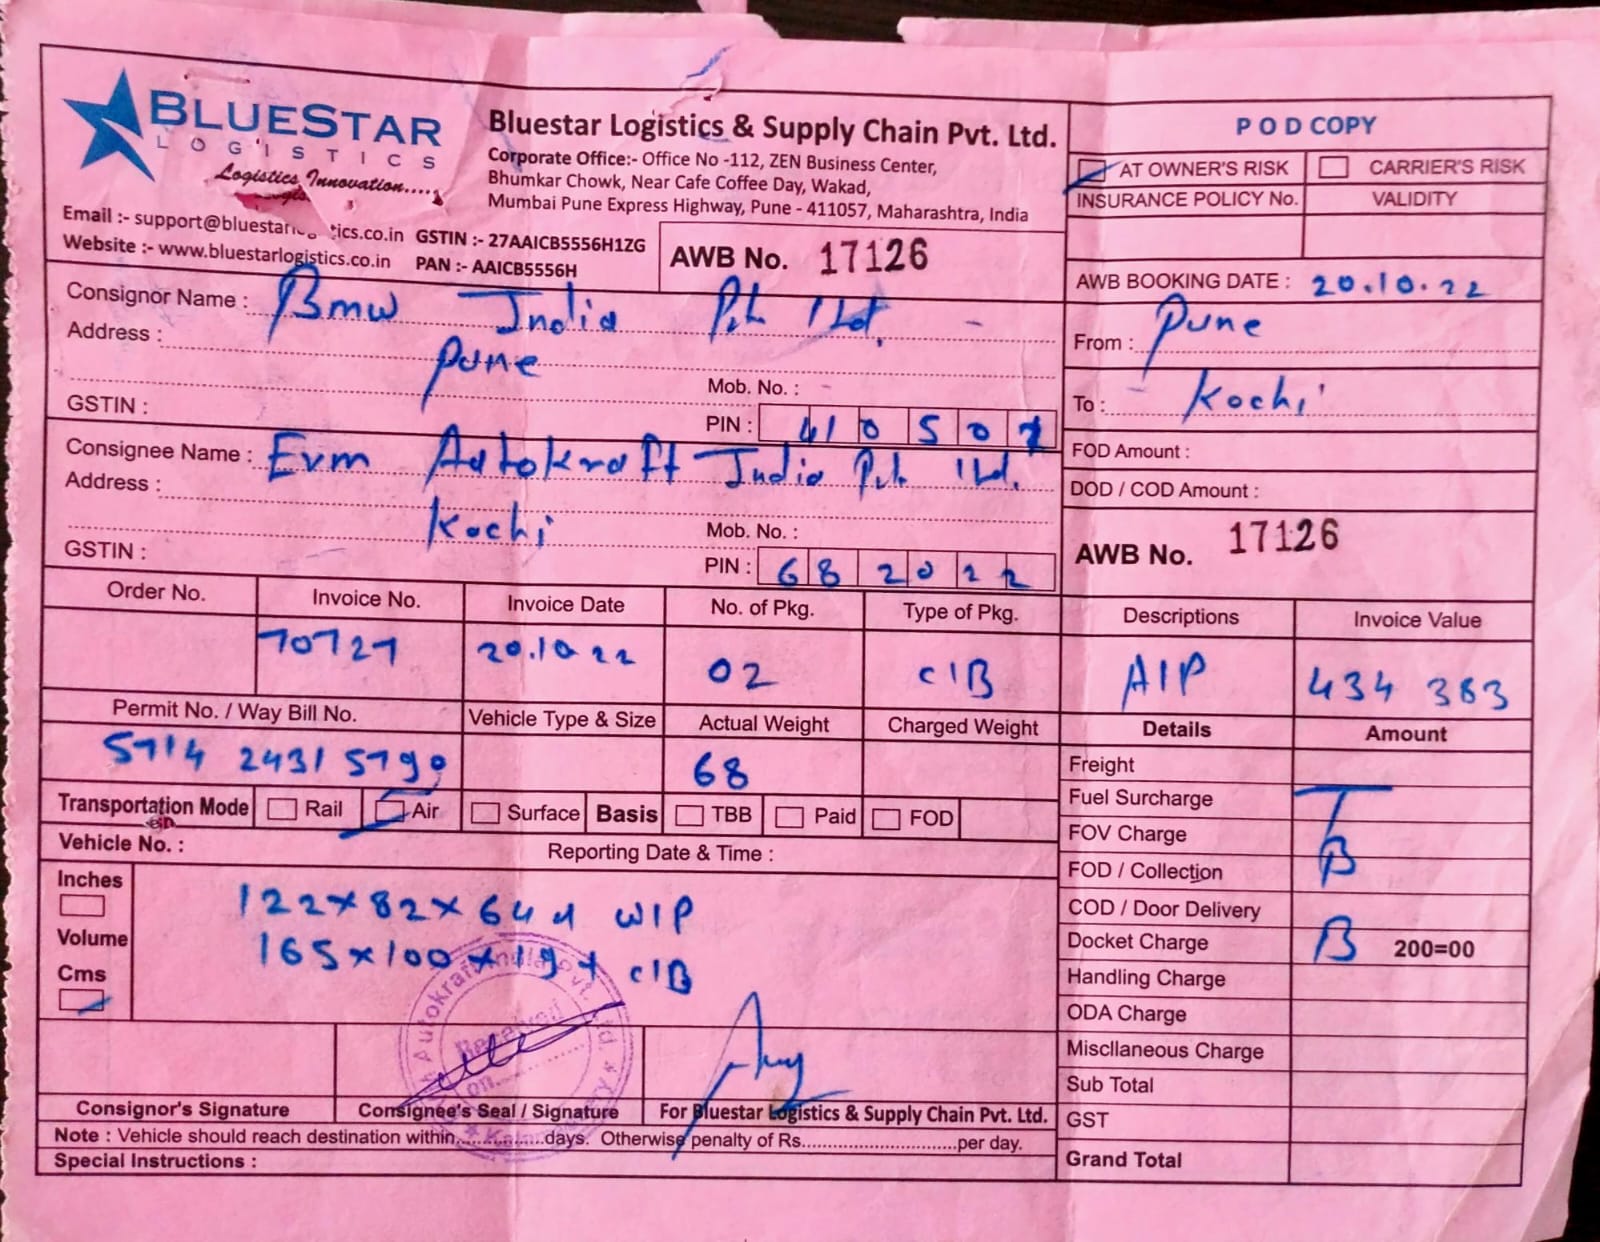 BLUESTAR
LOGISTICS
Logistics Innovation....
Bluestar Logistics & Supply Chain Pvt. Ltd.
Corporate Office:- Office No -112, ZEN Business Center,
Bhumkar Chowk, Near Cafe Coffee Day, Wakad,
Mumbai Pune Express Highway, Pune - 411057, Maharashtra, India
Email :- support@bluestar ics.co.in GSTIN :- 27AAICB5556H1ZG
Website :- www.bluestarlogistics.co.in PAN :- AAICB5556H
AWB No. 17126
POD COPY
AT OWNER'S RISK CARRIER'S RISK
INSURANCE POLICY No. VALIDITY
AWB BOOKING DATE : 20.10.22
Consignor Name : Bmw India Pvt Ltd.
Address : Pune
Mob. No. :
GSTIN : PIN : 41050
From : Pune
To : Kochi
Consignee Name : Evm Autokraft India Pvt Ltd.
Address :
Kochi Mob. No. :
GSTIN : PIN : 682022
FOD Amount :
DOD / COD Amount :
AWB No. 17126
Order No. Invoice No. Invoice Date No. of Pkg. Type of Pkg. Descriptions Invoice Value
70727 20.10.22 02 C/B A/P 434 383
Permit No. / Way Bill No. Vehicle Type & Size Actual Weight Charged Weight Details Amount
5714 2431 5790 68
Freight
Transportation Mode Rail Air Surface Basis TBB Paid FOD
Fuel Surcharge T
Vehicle No. : Reporting Date & Time :
FOV Charge B
FOD / Collection
COD / Door Delivery
Docket Charge B 200=00
Handling Charge
ODA Charge
Miscllaneous Charge
Sub Total
GST
Grand Total
Inches
Volume
Cms
122x82x64 W/P
165x100x19 C/B
Autokraft India Pvt. Ltd.
Received
on
Consignor's Signature Consignee's Seal / Signature For Bluestar Logistics & Supply Chain Pvt. Ltd.
Note : Vehicle should reach destination within..............days. Otherwise penalty of Rs.............................per day.
Special Instructions :